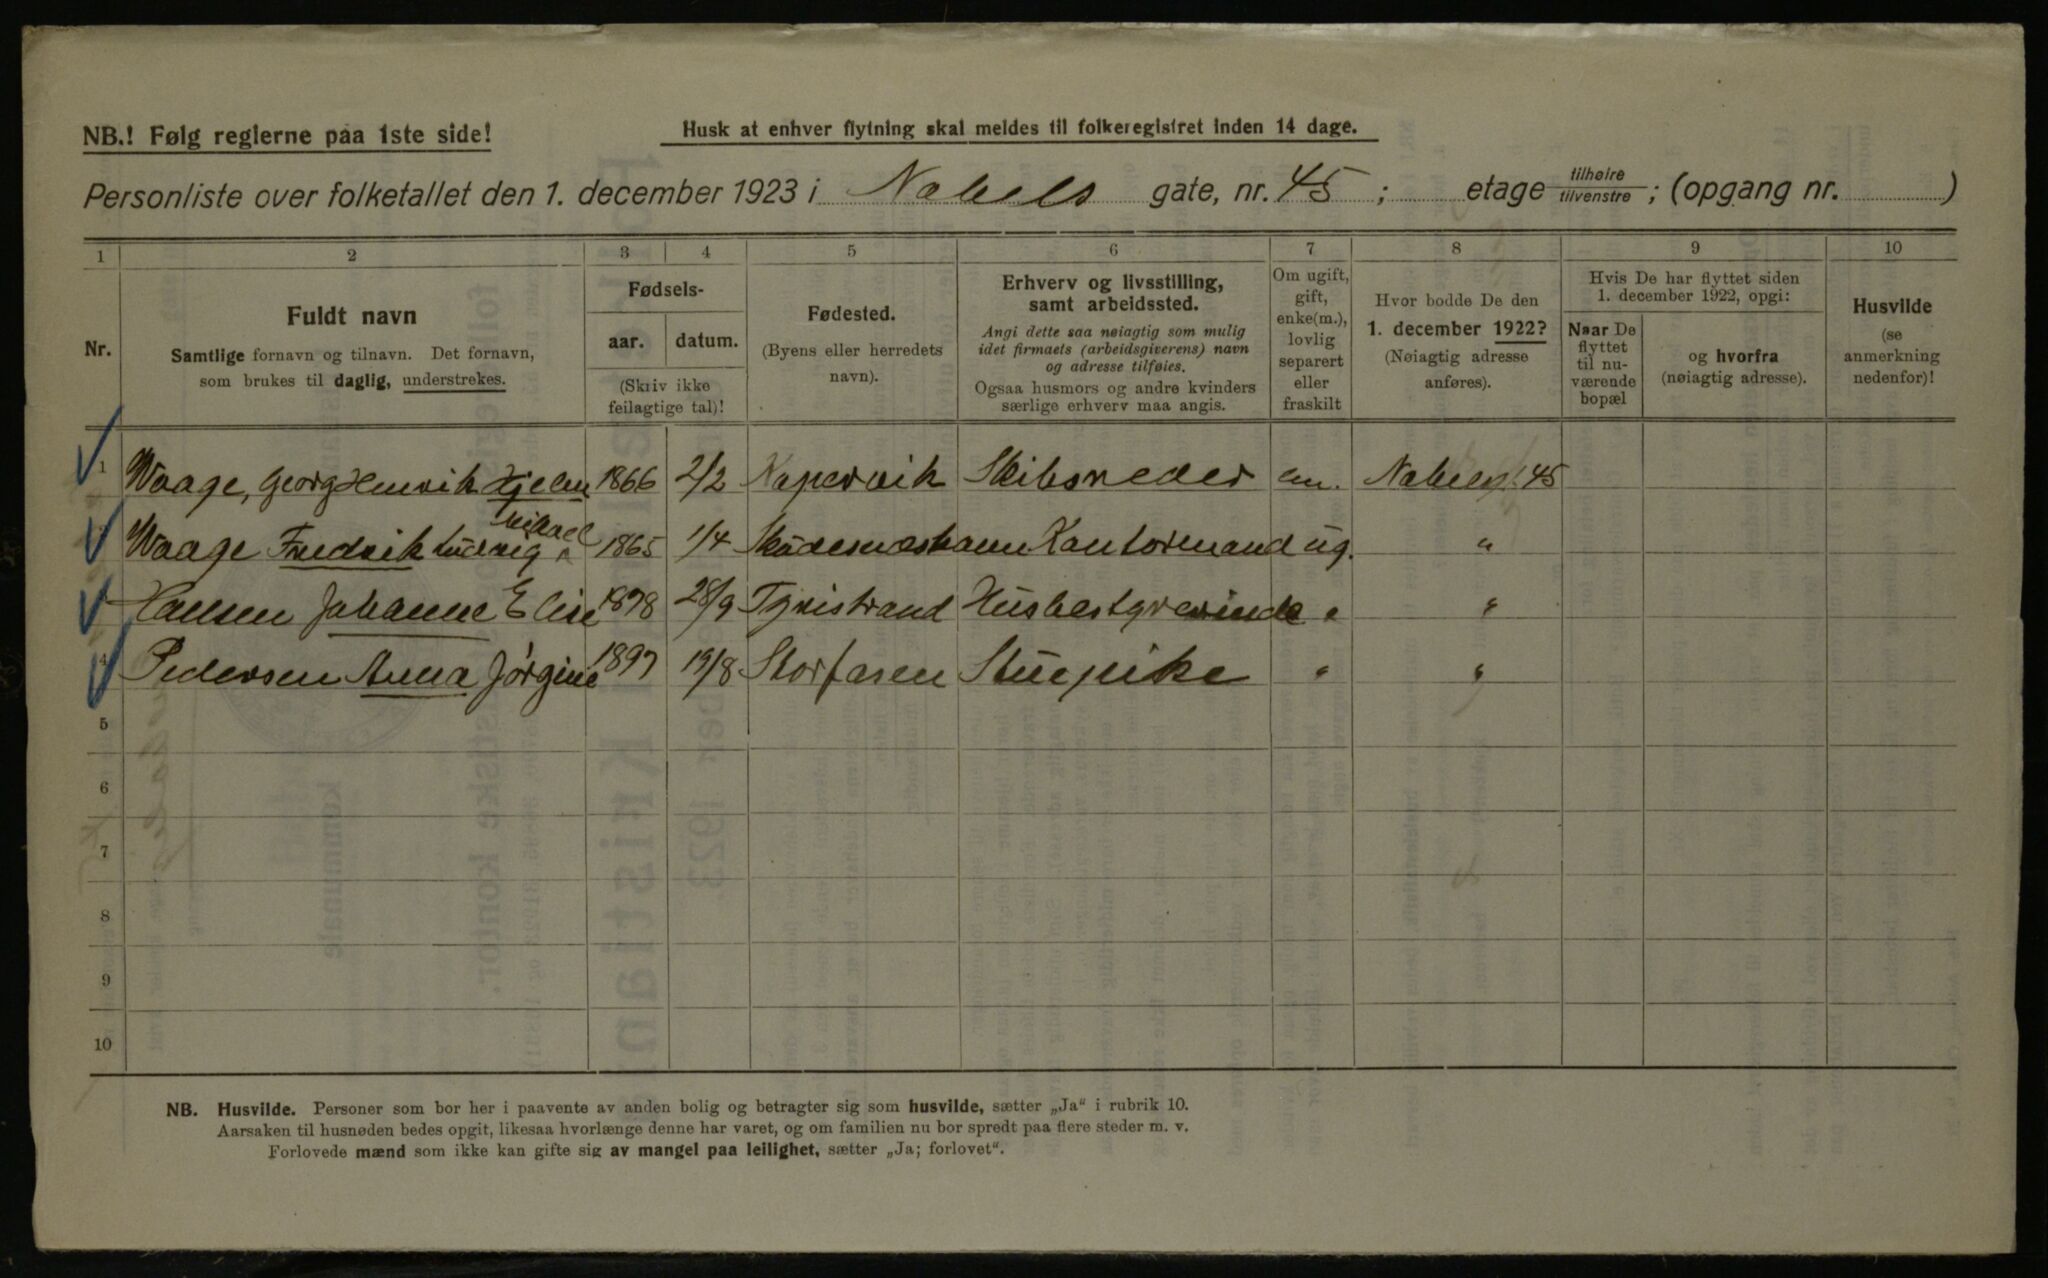 NB.! Følg reglerne paa 1ste side!
Husk at enhver flytning skal meldes til folkeregistret inden 14 dage.
Personliste over folketallet den 1. december 1923 i Nobels gate, nr. 45 ; etage tilhøire tilvenstre ; (opgang nr. )
1 2 3 4 5 6 7 8 9 10
Nr.
Fuldt navn
Samtlige fornavn og tilnavn. Det fornavn,
som brukes til daglig, understrekes.
Fødsels-
aar. datum.
(Skriv ikke
feilagtige tal)!
Fødested.
(Byens eller herredets
navn).
Erhverv og livsstilling,
samt arbeidssted.
Angi dette saa nøiagtig som mulig
idet firmaets (arbeidsgiverens) navn
og adresse tilføies.
Ogsaa husmors og andre kvinders
særlige erhverv maa angis.
Om ugift,
gift,
enke(m.),
lovlig
separert
eller
fraskilt
Hvor bodde De den
1. december 1922?
(Nøiagtig adresse
anføres).
Hvis De har flyttet siden
1. december 1922, opgi:
Naar De
flyttet
til nu-
værende
bopæl
og hvorfra
(nøiagtig adresse).
Husvilde
(se
anmerkning
nedenfor)!
1 Waage, Georg Henrik Hjelm 1866 2/2 Kopervik Skibsreder em. Nobelsgt. 45
Waage Fredrik Ludvig Mikael 1865 1/4 Skudesneshavn Kontormand ug. "
Hansen Johanne Elise 1878 28/9 Tvistrand Husbestyrerinde " "
4 Pedersen Anna Jørgine 1897 19/8 Storfosen Stuepike " "
5
6
7
8
9
10
NB. Husvilde. Personer som bor her i paavente av anden bolig og betragter sig som husvilde, sætter „Ja“ i rubrik 10.
Aarsaken til husnøden bedes opgit, likesaa hvorlænge denne har varet, og om familien nu bor spredt paa flere steder m. v.
Forlovede mænd som ikke kan gifte sig av mangel paa leilighet, sætter „Ja; forlovet“.